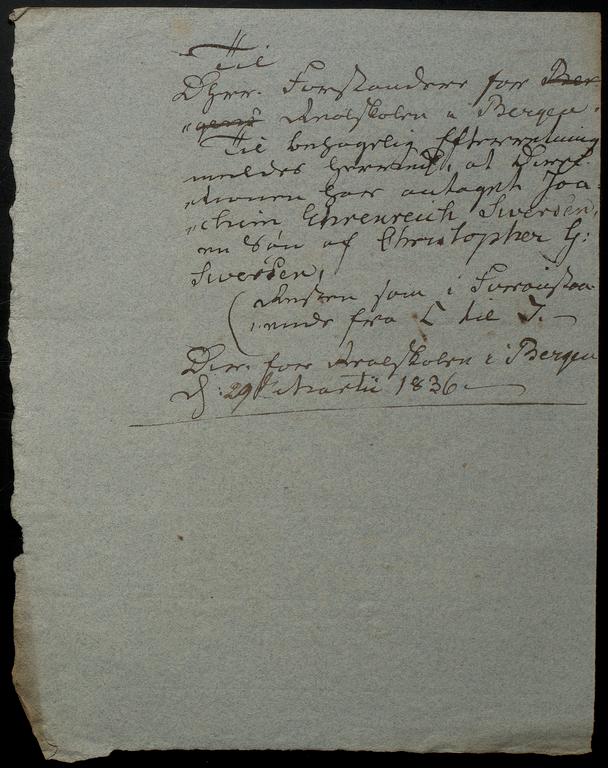 Til
DHrr. Forstandere for Ber-
"gens Realskolen i Bergen.
Til behagelig Efterretning
meldes herved, at Direc-
"tionen har antaget Joa-
"chim Ehrenreich Iwersen,
en Søn af Christopher G:
Iwersen,
(Resten som i Foranstaa-
"ende fra L til I. —
Dir. for Realskolen i Bergen
d: 29 Martii 1836. —